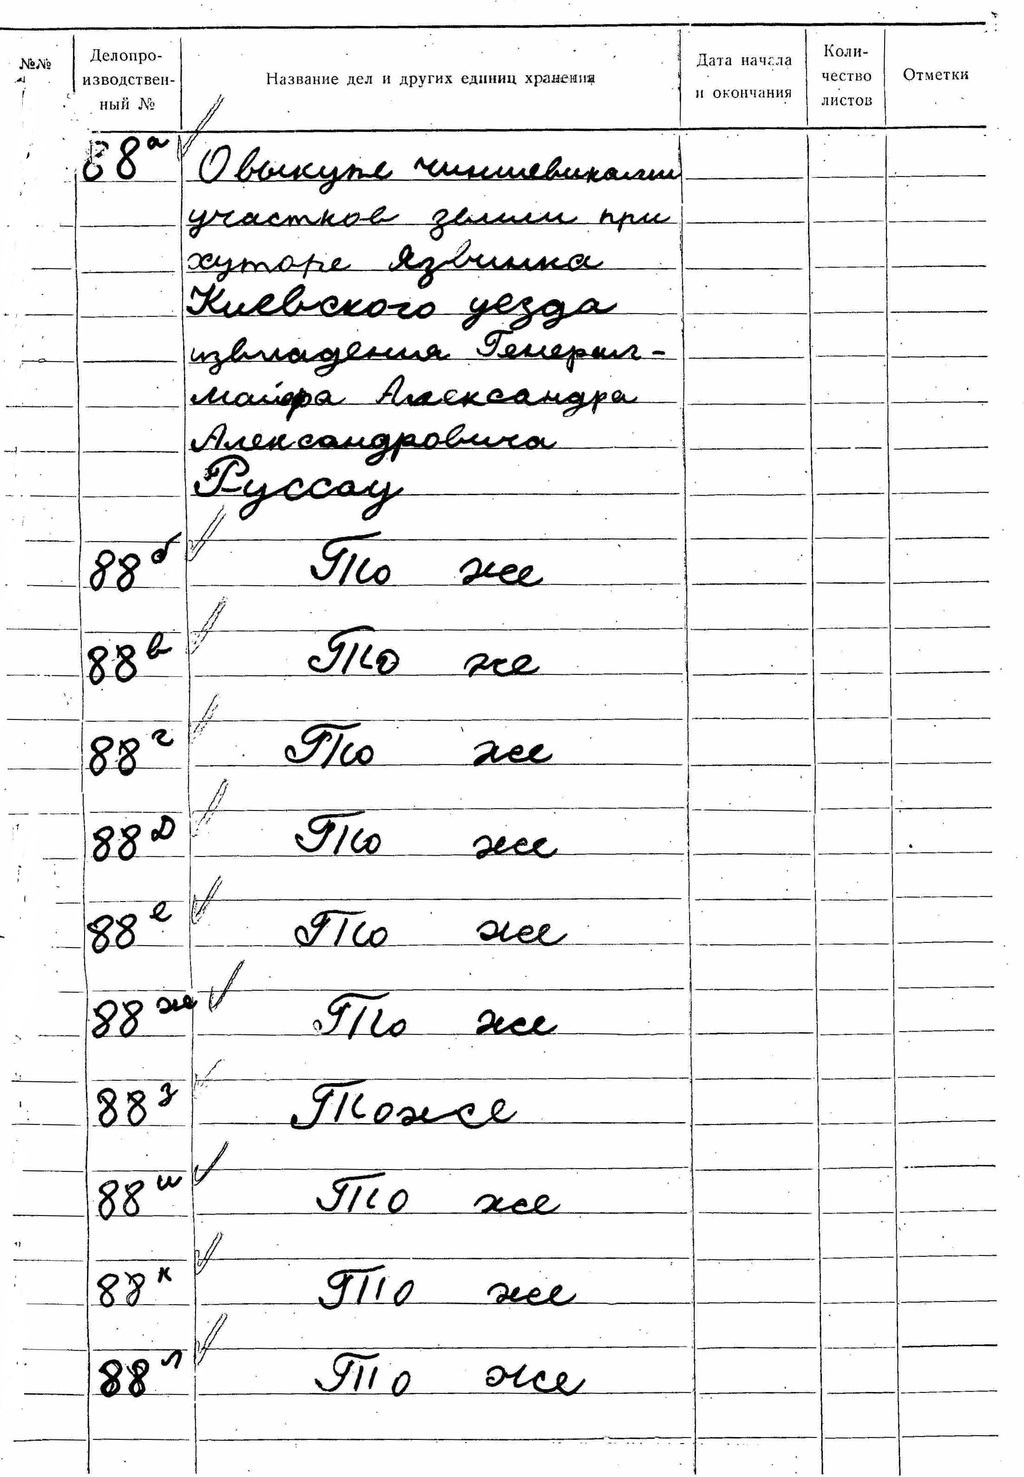 №№ Делопро-изводствен-ный № Название дел и других единиц хранения Дата начала и окончания Коли-чество листов Отметки
88а О выкупе чиншевиками
участков земли при
хуторе Язвинка
Киевского уезда
из владения Генерал-
майора Александра
Александровича
Руссау
88б То же
88в То же
88г То же
88д То же
88е То же
88ж То же
88з То же
88и То же
88к То же
88л То же